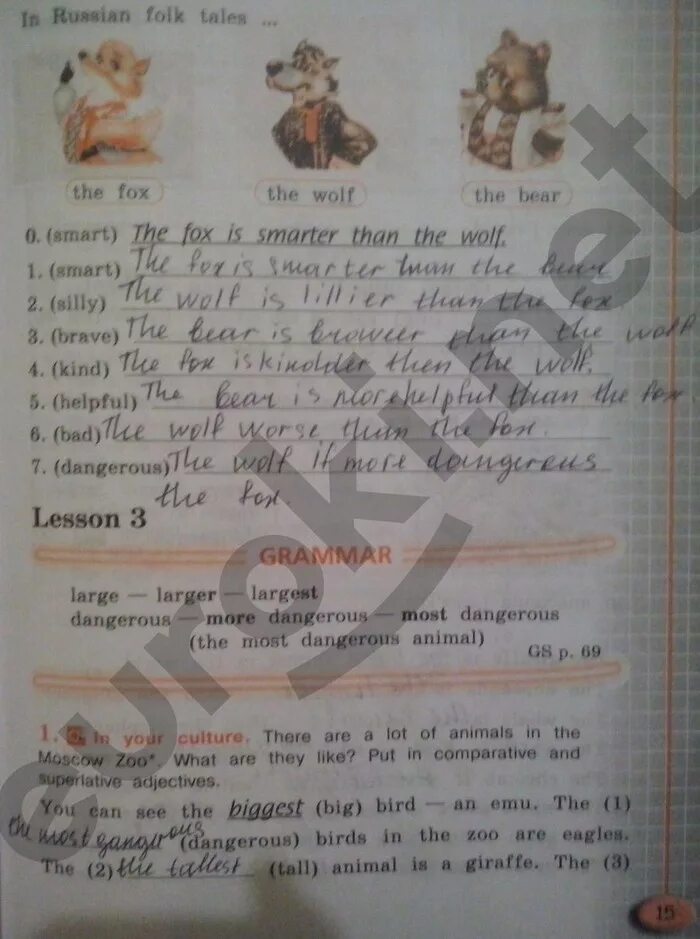 In Russian folk tales ...
the fox the wolf the bear
0. (smart) The fox is smarter than the wolf.
1. (smart) The fox is smarter than the bear
2. (silly) The wolf is lillier than the fox
3. (brave) The bear is broweer than the wolf
4. (kind) The fox is kinolder then the wolf.
5. (helpful) The bear is more helpful than the fox.
6. (bad) The wolf worse than the fox.
7. (dangerous) The wolf if more dangerous
the fox.
Lesson 3
GRAMMAR
large — larger — largest
dangerous — more dangerous — most dangerous
(the most dangerous animal)
GS p. 69
1. In your culture. There are a lot of animals in the
Moscow Zoo*. What are they like? Put in comparative and
superlative adjectives.
You can see the biggest (big) bird — an emu. The (1)
the most gangerous (dangerous) birds in the zoo are eagles.
The (2) the tallest (tall) animal is a giraffe. The (3)
15
euroki.net